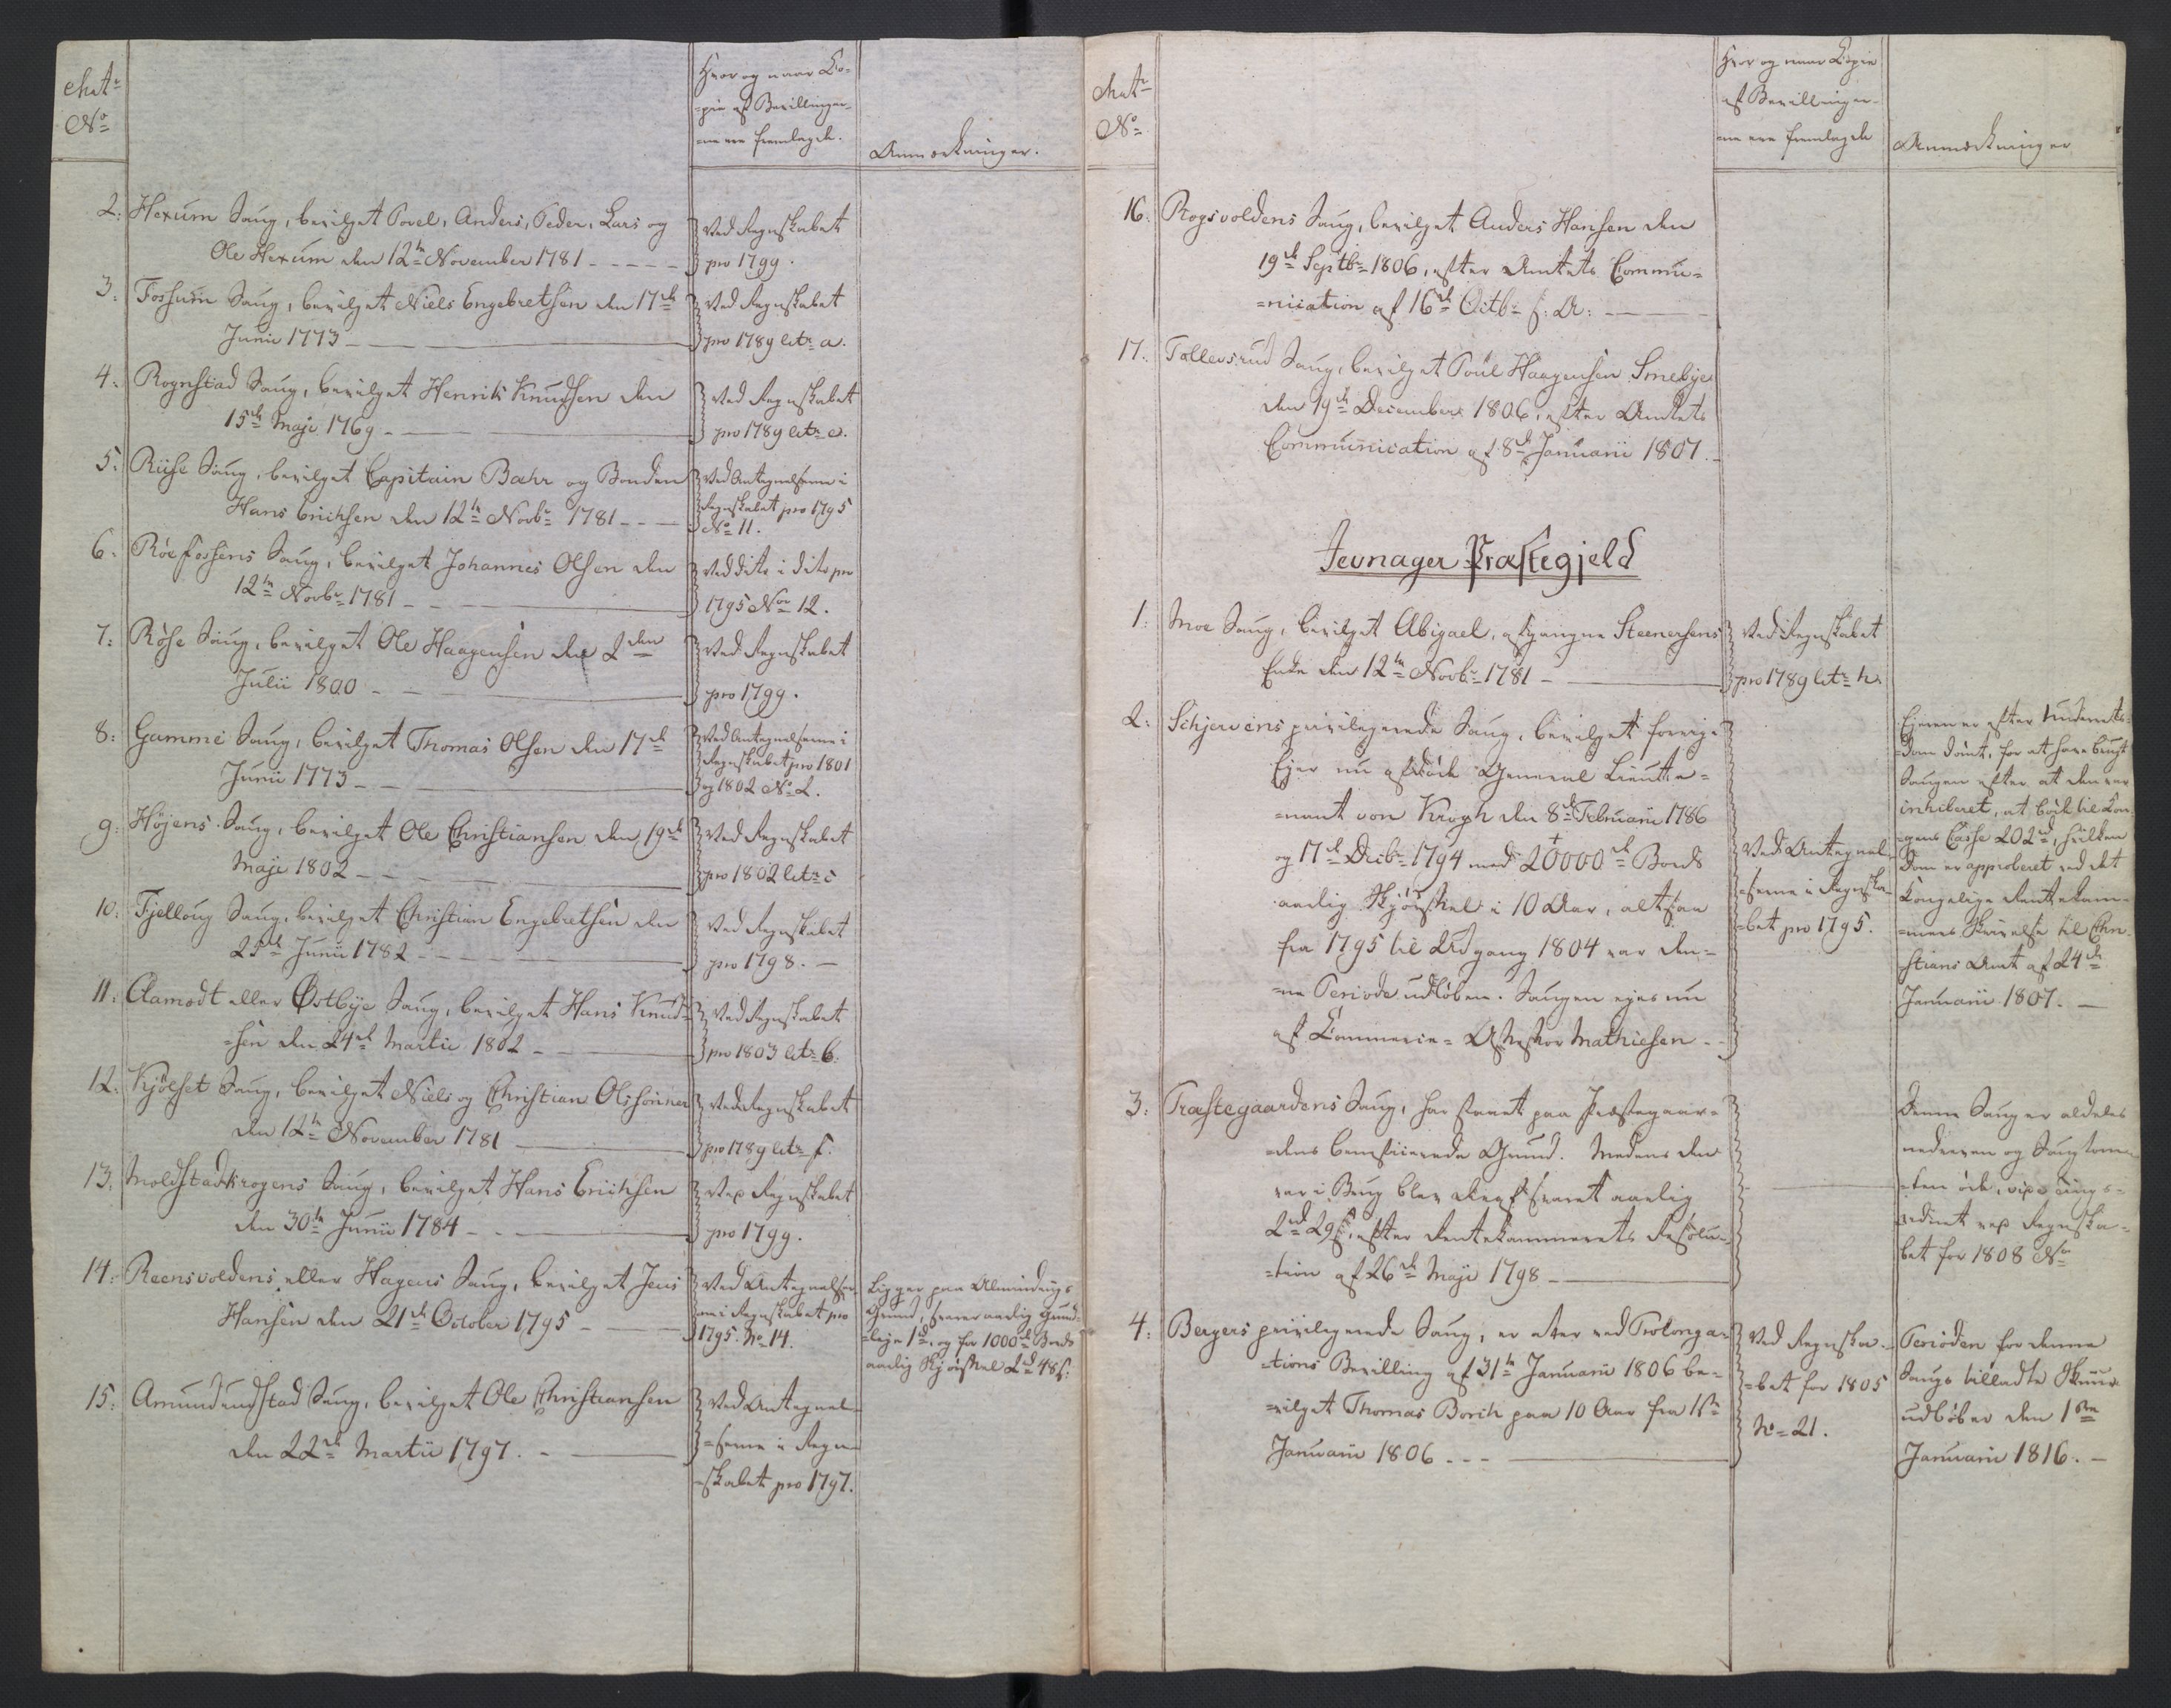 Matr
No
Hvor og naar Co-
=pie af Bevillinger-
=ne ere fremlagde.
Anmærkninger.
2: Hexum Saug, bevilget Povel, Anders, Peder, Lars og
Ole Hexum den 12te November 1781
Ved Regnskabet
pro 1799.
3. Fossum Saug, bevilget Niels Engebrethsen den 17de
Junii 1773
Ved Regnskabet
pro 1789 litr a.
4: Rognstad Saug, bevilget Henrik Knudsen den
15de Maji 1769
Ved Regnskabet
pro 1789 litr e.
5: Riise Saug, bevilget Capitain Bæhr og Bonden
Hans Erichsen den 12te Novbr 1781
Ved Antegnelserne i
Regnskabet pro 1795
No 11.
6: Röefossens Saug, bevilget Johannes Olsen den
12te Novbr 1781
Ved dito i dito pro
1795 No 12.
7: Röse Saug, bevilget Ole Haagensen den 2den
Julii 1800
Ved Regnskabet
pro 1799.
8: Gamme Saug, bevilget Thomas Olsen den 17de
Junii 1773
Ved Antegnelserne i
Regnskabet pro 1801
og 1802 No 2.
9: Höjens Saug, bevilget Ole Christiansen den 19de
Maji 1802
Ved Regnskabet
pro 1802 litr c
10: Fjelloug Saug, bevilget Christian Engebrethsen den
25de Junii 1782
Ved Regnskabet
pro 1798.
11: Aamodt eller Østbye Saug, bevilget Hans Knud=
=sen den 24de Martii 1802
Ved Regnskabet
pro 1803 litr b.
12: Kjölset Saug, bevilget Niels og Christian Olssönner
den 12te November 1781
Ved Regnskabet
pro 1789 litr f.
13. Moldstadkrogens Saug, bevilget Hans Erichsen
den 30te Junii 1784
Ved Regnskabet
pro 1799.
14: Reensvoldens eller Hagens Saug, bevilget Jens
Hansen den 21de October 1795
Ved Antegnelser-
ne i Regnskabet pro
1795. No 14.
Ligger paa Almindings
Grund, svarer aarlig Grund-
=leje 1rd, og for 1000de Bord
aarlig Skjørsel 2rd 48s:
15: Amundrudstad Saug, bevilget Ole Christiansen
den 22de Martii 1797.
Ved Antegnel-
=serne i Regn-
=skabet pro 1797.
Matr
No
Hvor og naar Copie
af Bevillinger-
ne ere fremlagde
Anmærkninger
16: Rogsvoldens Saug, bevilget Anders Hansen den
19de Septbr 1806, efter Amtets Commu=
=nication af 16de Octbr s: A:
17: Tollersrud Saug, bevilget Poul Haagensen Smebye
den 19de December 1806, efter Amtets
Communication af 8de Januarii 1807.
Jevnager Præstegjeld
1: Moe Saug, bevilget Abigael, afgangne Steenersens
Enke den 12te Novbr 1781
Ved Regnskabet
pro 1789 litr h.
2: Schjervens privilegerede Saug, bevilget forrige
Ejer nu afdøde General Lieute=
=nant von Krogh den 8de Februarii 1786
og 17de Decbr 1794 med 20000de Bords
aarlig Skjørsel i 10 Aar, altsaa
fra 1795 til Udgang 1804 var den=
=ne Periode udløben. Saugen ejes nu
af Commerce= Assessor Mathiesen
Ved Antegnel-
=serne i Regnska-
=bet pro 1795.
Ejeren er efter Underrets-
=dom dömt, for at have brugt
Saugen efter at den var
inhiberet, at böde til Kon-
=gens Casse 202rd, hvilken
Dom er approberet ved det
Kongelige Rentekam-
=mers Skrivelse til Chri-
stians Amt af 24de
Januarii 1807.
3: Præstegaardens Saug, har staaet paa Præstegaar-
=dens beneficerede Grund. Medens den
var i Brug blev deraf svaret aarlig
2rd 29s, efter Rentekammerets Resolu-
=tion af 26de Maji 1798
Denne Saug er aldeles
nedreven og Saugtom-
=ten öde, vide Tings-
=vidnet ved Regnska-
bet for 1808 No
4: Bergers privilegerede Saug, er atter ved Prolonga-
=tions Bevilling af 31te Januarii 1806 be-
=vilget Thomas Borch paa 10 Aar fra 1ste
Januarii 1806
Ved Regnska-
=bet for 1805
No 21.
Perioden for denne
Saugs tilladte Skuur
udløber den 1ste
Januarii 1816.